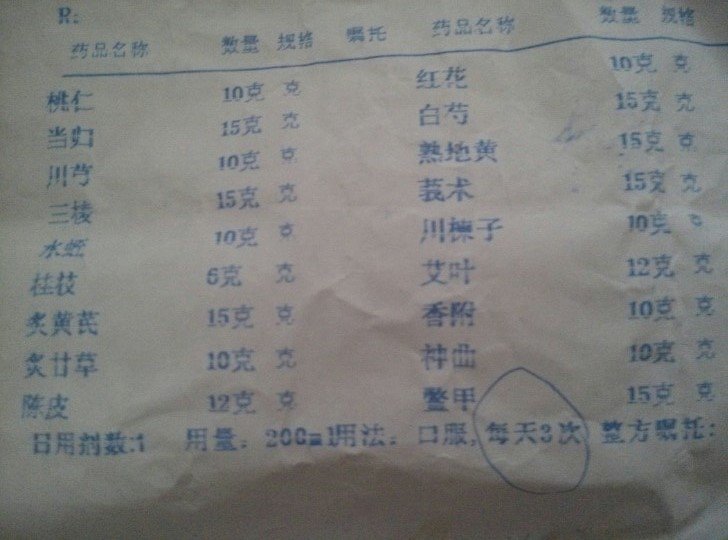 R:
药品名称 数量 规格 嘱托 药品名称 数量 规格
桃仁 10克 克 红花 10克 克
当归 15克 克 白芍 15克 克
川芎 10克 克 熟地黄 15克 克
三棱 15克 克 莪术 15克 克
水蛭 10克 克 川楝子 10克 克
桂枝 6克 克 艾叶 12克 克
炙黄芪 15克 克 香附 10克 克
炙甘草 10克 克 神曲 10克 克
陈皮 12克 克 鳖甲 15克 克
日用剂数:1 用量: 200ml用法: 口服, 每天3次 整方嘱托: